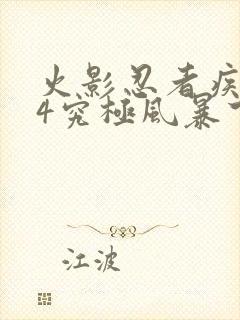 火影忍者疾
4究極風暴下
江波